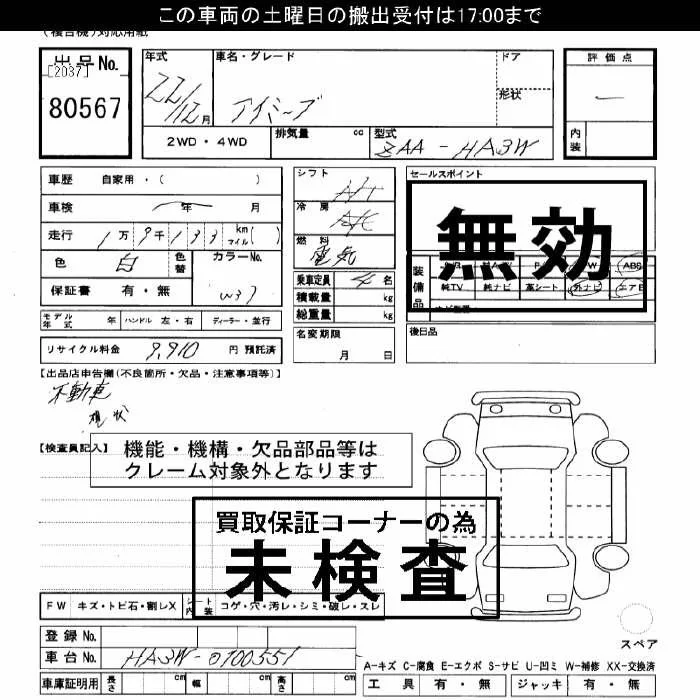 この車両の土曜日の搬出受付は17:00まで
(複合機)対応用紙
出品No.
[2037]
80567
年式
22/12月
車名・グレード
アイミーブ
ドア
形状
評価点
—
内装
2WD・4WD
排気量 cc
型式
ZAA-HA3W
車歴 自家用・( )
車検 年 月
走行 1万9千133 km マイル( )
色 白 色替 カラーNo. W37
保証書 有・無
モデル年式 年 ハンドル 左・右 ディーラー・並行
リサイクル料金 9,910 円 預託済
シフト A/T
冷房 A/C
燃料 電気
乗車定員 4名
積載量 kg
総重量 kg
名変期限
月 日
セールスポイント
無効
装備品
ABS
純TV 純ナビ 革シート 外ナビ エアB
後日品
【出品店申告欄(不良箇所・欠品・注意事項等)】
不動車
現状
【検査員記入】
機能・機構・欠品部品等は
クレーム対象外となります
買取保証コーナーの為
未検査
FW キズ・トビ石・割レX シート内装 コゲ・穴・汚レ・シミ・破レ・スレ
登録No.
車台No. HA3W-0100551
車庫証明用 長さ cm 幅 cm 高さ cm
スペア
A-キズ C-腐食 E-エクボ S-サビ U-凹ミ W-補修 XX-交換済
工具 有・無 ジャッキ 有・無